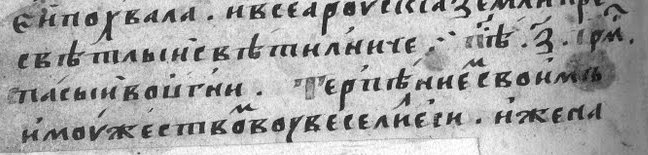 еи похвала . и всеа роусїа земли пре
свѣтлыи свѣтилниче ⁘ пѣⷭ . з҃ . ірмⷪ .
пасыи во ѡгни . Терпѣнїеⷨ своимъ
и моужествоⷨ воꙁвеселиⷧ еси . и жена